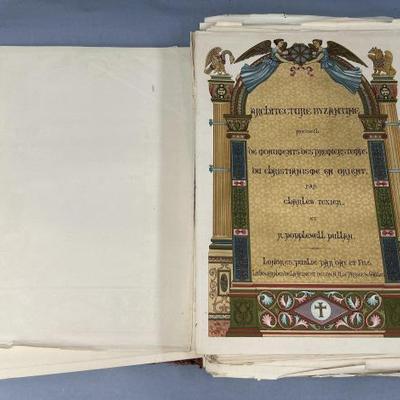 ARCHITECTURE BYZANTINE
RECUEIL
DE MONUMENTS DES PREMIERS TEMPS
DU CHRISTIANISME EN ORIENT.
PAR
CHARLES TEXIER.
ET
R. POPPLEWELL PULLAN.
LONDRES, PUBLIÉ PAR DAY ET FILS,